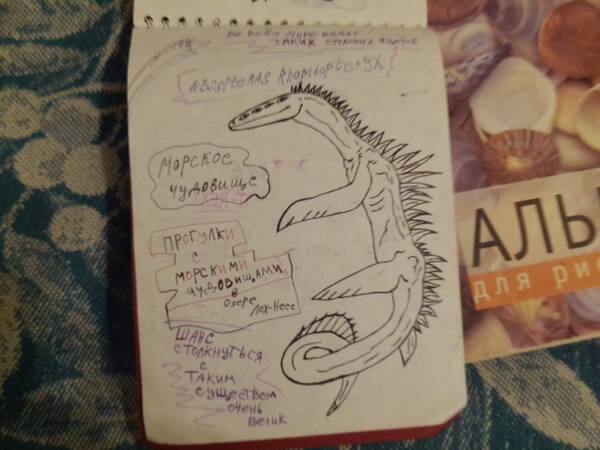 во всём мире
таких странных
Nessiteras Rhombopteryx
Морское
чудовище
Прогулки
с
морскими
чудовищами
в
озере Лох-Несс
Шанс
столкнуться
с
таким
существом
очень
велик
АЛЬ
для рис